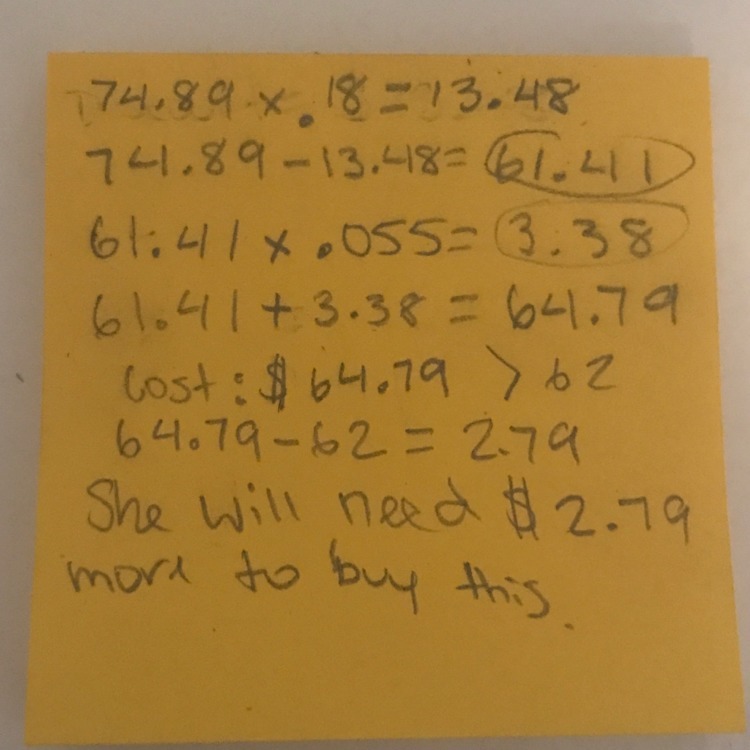 74.89 x .18 = 13.48
74.89 - 13.48 = 61.41
61.41 x .055 = 3.38
61.41 + 3.38 = 64.79
Cost: $64.79 > 62
64.79 - 62 = 2.79
She will need $2.79
more to buy this.